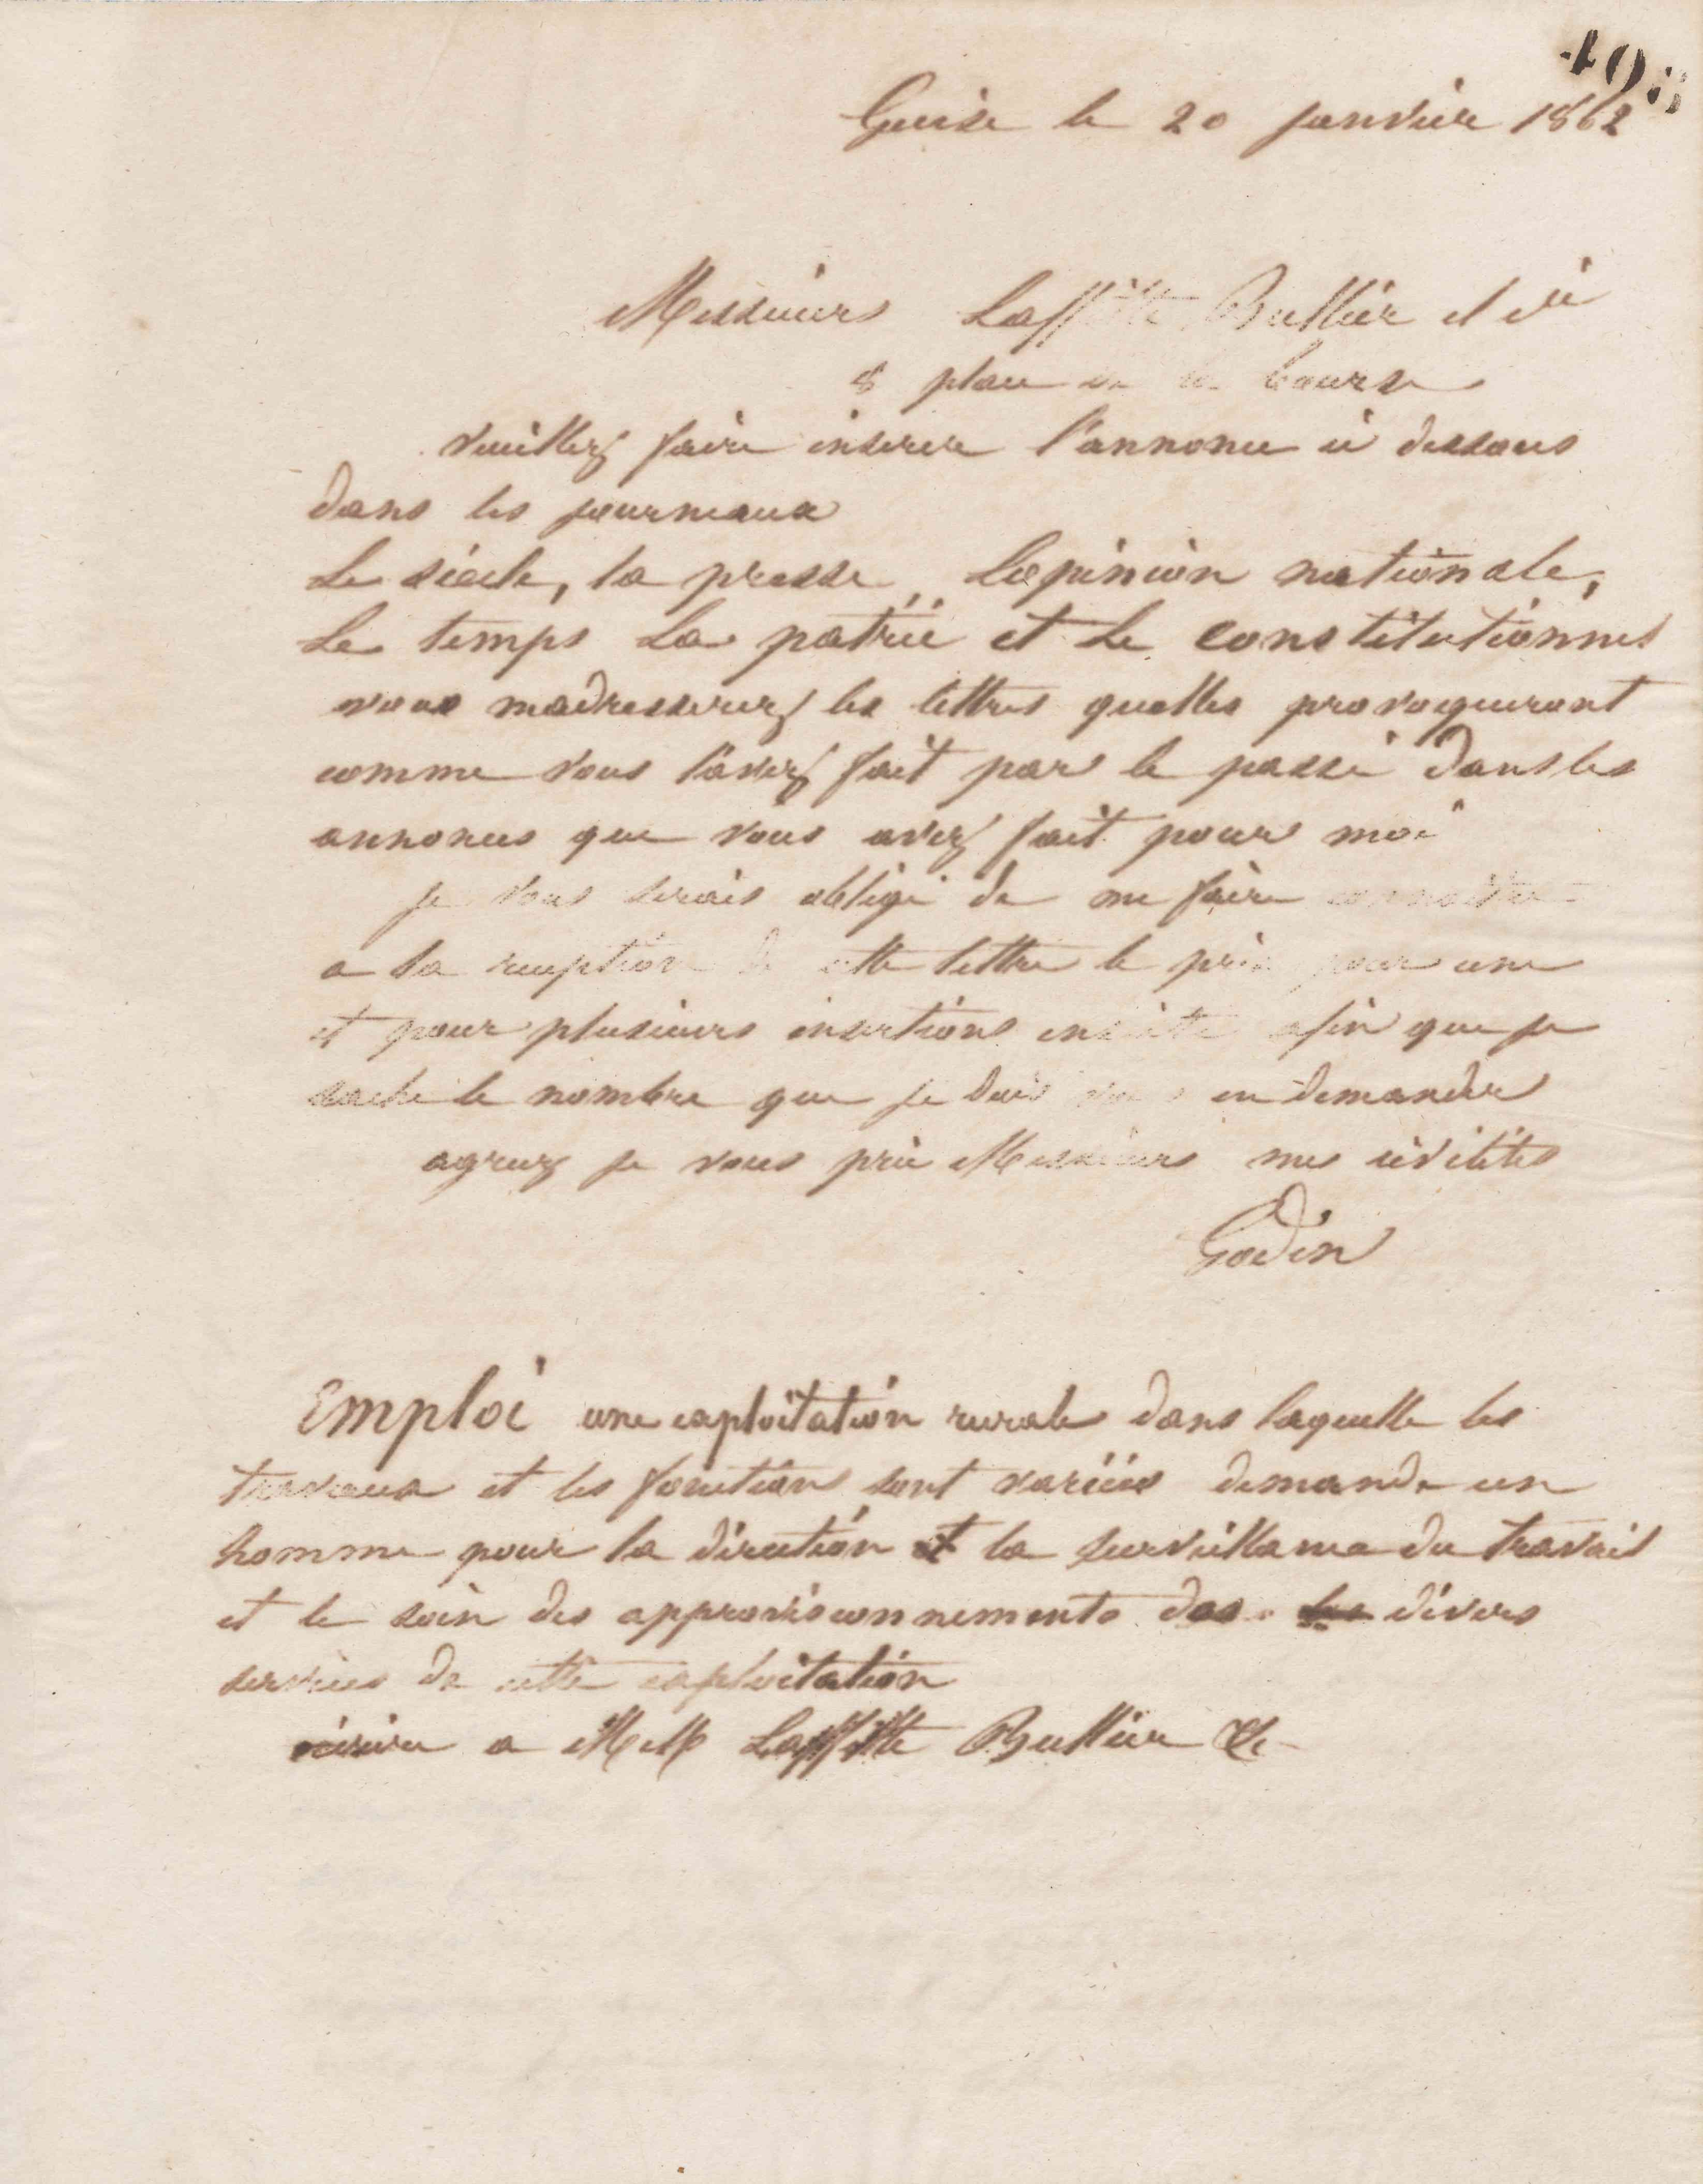 408
Guise le 20 janvier 1862
Messieurs Laffitte Bullier et Cie
8 place de la bourse
veuillez faire inserer l'annonce ci dessous
dans les journeaux
Le siècle, la presse, Lopinion nationale,
Le temps La patrie et Le constitutionnel
vous madresserez les lettres quelles provoqueront
comme vous l'avez fait par le passé dans les
annonces que vous avez fait pour moi
je vous serais obligé de me faire connoitre
a la reception de cette lettre le prix pour une
et pour plusieurs insertions ensuite afin que je
sache le nombre que je dois vous en demander
agreez je vous prie Messieurs mes civilités
Godin
Emploi une exploitation rurale dans laquelle les
travaux et les fonctions sont variées demande un
homme pour la direction et la surveillance du travail
et le soin des approvisionnements des divers
services de cette exploitation
écrire a MM Laffitte Bullier &c